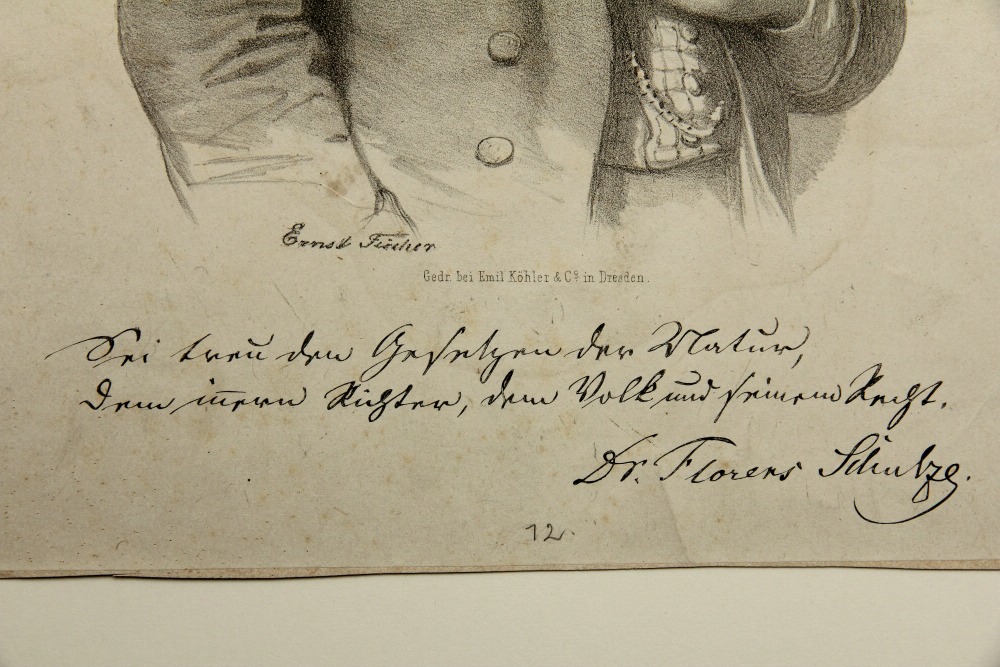 Ernst Fischer
Gedr. bei Emil Köhler & Co. in Dresden.
Sei treu den Gesetzen der Natur,
dem innern Richter, dem Volk und seinem Recht.
Dr. Florens Schulze.
12.